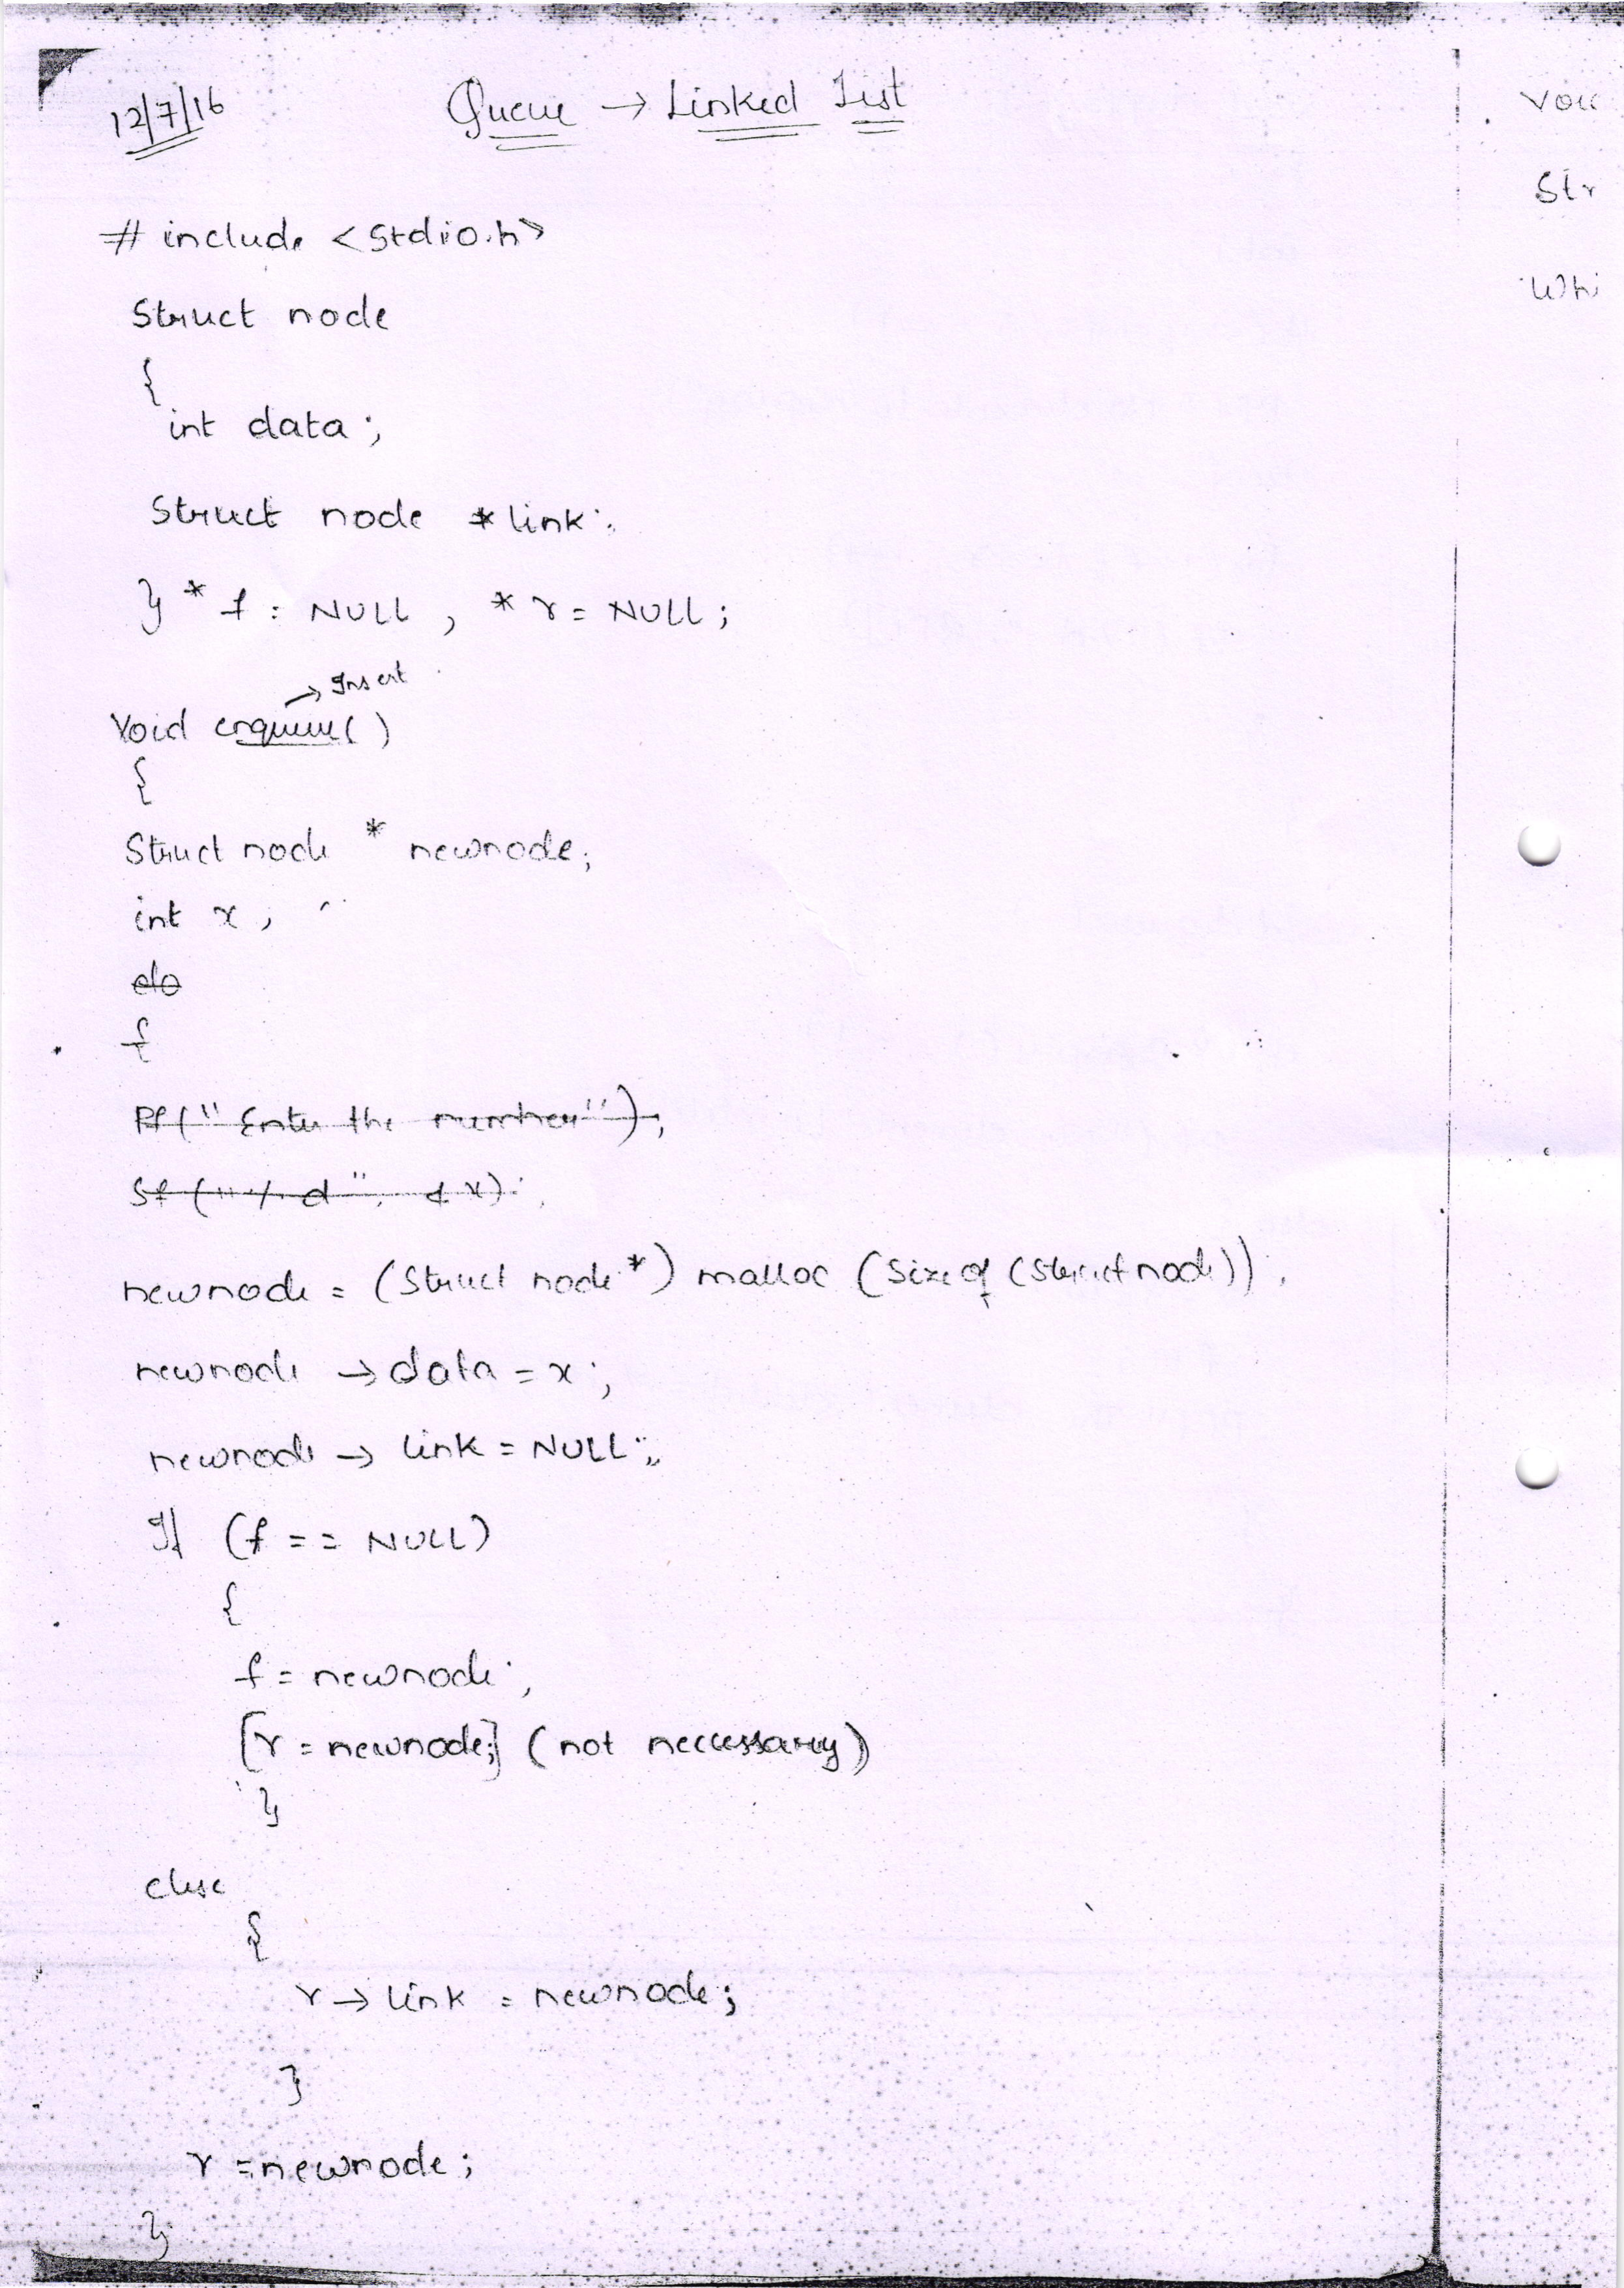 12/7/16
Queue → Linked List
# include <stdio.h>
Struct node
{
int data;
Struct node *link;
} * f = NULL, * r = NULL;
→ Insert
Void enqueue()
{
Struct node * newnode;
int x;
do
{
Pf("Enter the number");
Sf("%d", &x);
newnode = (Struct node*) malloc (Sizeof (Struct node));
newnode → data = x;
newnode → link = NULL;
If (f == NULL)
{
f = newnode;
[r = newnode;] (not neccessary)
}
else
{
r → link = newnode;
}
r = newnode;
}
Str
Whi